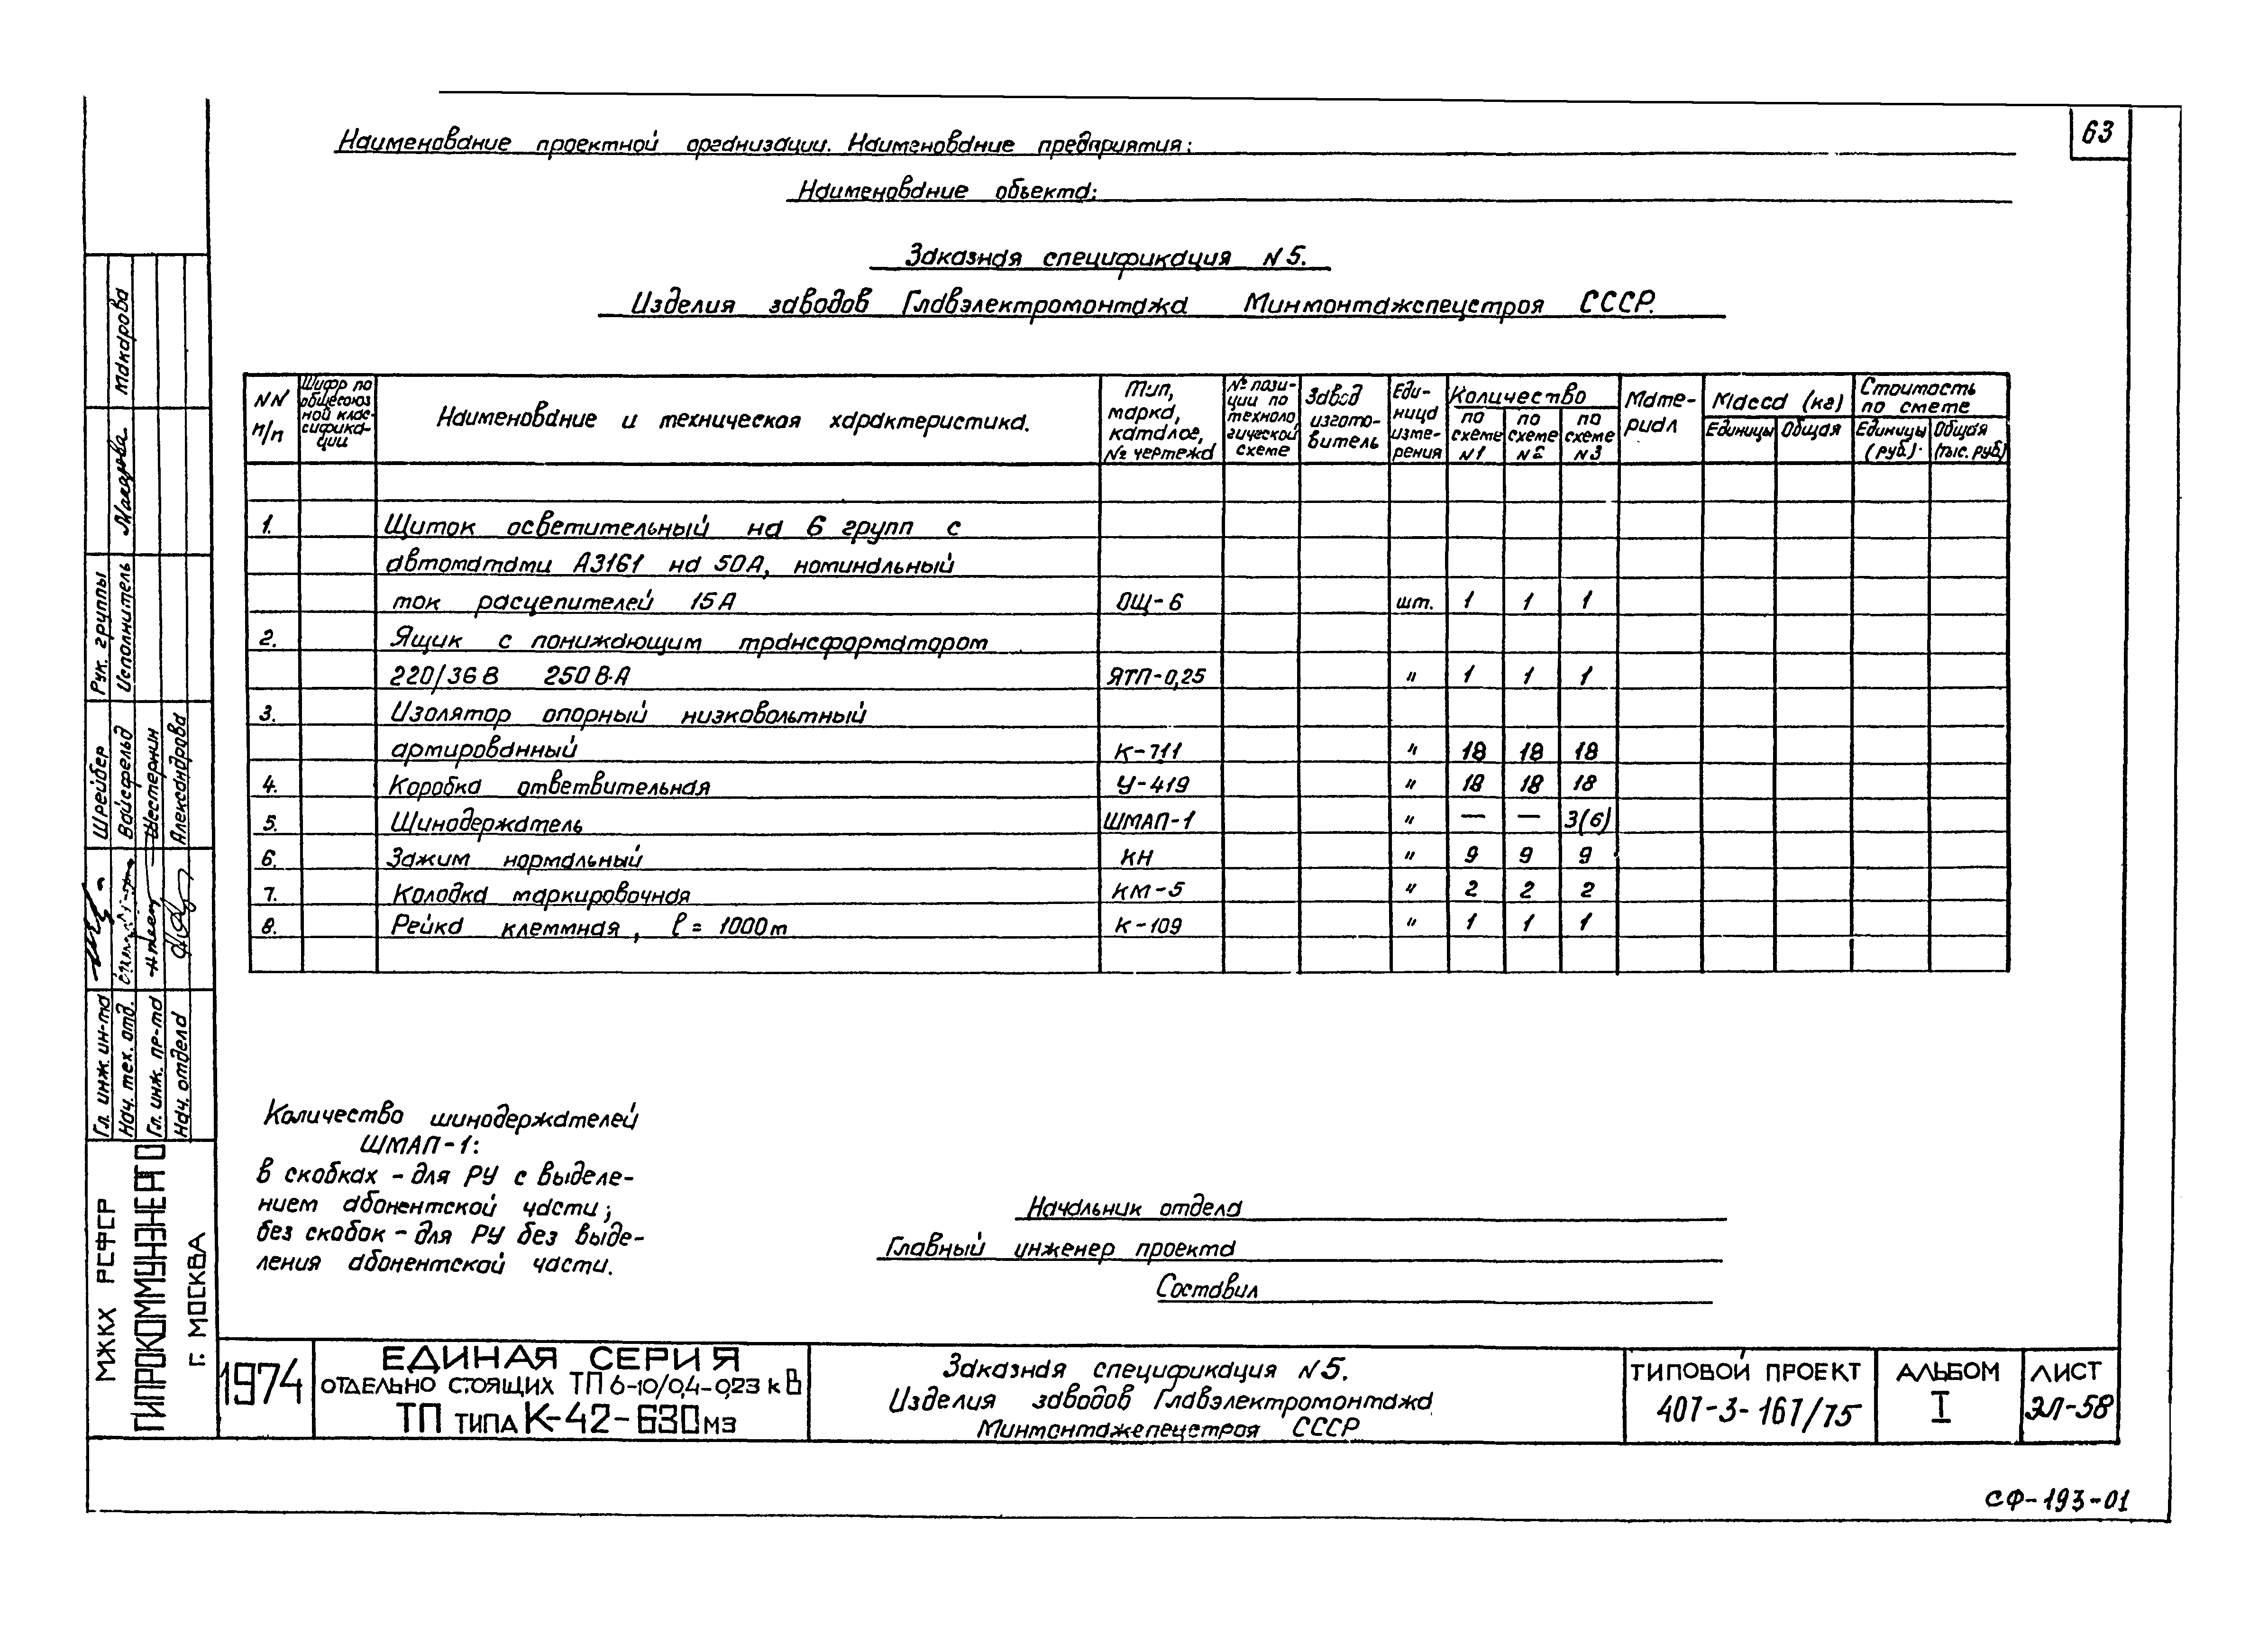 63
Наименование проектной организации. Наименование предприятия:
Наименование объекта:
Заказная спецификация N 5.
Изделия заводов Главэлектромонтажа Минмонтажспецстроя СССР.
NN п/п
Шифр по общесоюз ной клас- сифика- ции
Наименование и техническая характеристика.
Тип, марка, каталог, № чертежа
№ пози- ции по техноло гической схеме
Завод изгото- витель
Еди- ница изме- рения
Количество
по схеме N1
по схеме N2
по схеме N3
Мате- риал
Масса (кг)
Единицы Общая
Стоимость по смете
Единицы (руб.) Общая (тыс. руб)
1. Щиток осветительный на 6 групп с
автоматами А3161 на 50А, номинальный
ток расцепителей 15А ОЩ-6 шт. 1 1 1
2. Ящик с понижающим трансформатором
220/36В 250В·А ЯТП-0,25 " 1 1 1
3. Изолятор опорный низковольтный
армированный К-711 " 18 18 18
4. Коробка ответвительная У-419 " 18 18 18
5. Шинодержатель ШМАП-1 " — — 3(6)
6. Зажим нормальный КН " 9 9 9
7. Колодка маркировочная КМ-5 " 2 2 2
8. Рейка клеммная, ℓ = 1000м К-109 " 1 1 1
Количество шинодержателей
ШМАП-1:
в скобках - для РУ с выделе-
нием абонентской части;
без скобок - для РУ без выде-
ления абонентской части.
Начальник отдела
Главный инженер проекта
Составил
МЖКХ РСФСР
ГИПРОКОММУНЭНЕРГО
Г. МОСКВА
Гл. инж. ин-та Шрейбер
Нач. тех. отд. Вайсфельд
Гл. инж. пр-та Шестернин
Нач. отдела Александрова
Рук. группы
Исполнитель Макарова Макарова
1974
ЕДИНАЯ СЕРИЯ
ОТДЕЛЬНО СТОЯЩИХ ТП 6-10/0,4-0,23 кВ
ТП ТИПА К-42-630 М3
Заказная спецификация N 5.
Изделия заводов Главэлектромонтажа
Минмонтажспецстроя СССР
ТИПОВОЙ ПРОЕКТ
407-3-167/75
АЛЬБОМ
I
ЛИСТ
ЭЛ-58
СФ-193-01